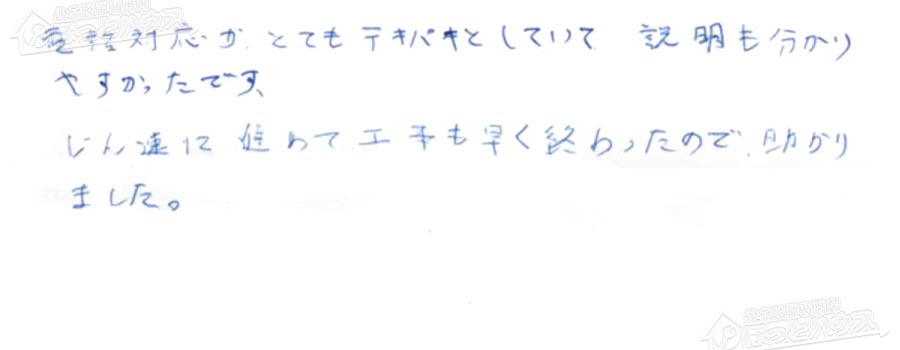 電話対応がとてもテキパキとしていて 説明も分かり
やすかったです、
じん速に進めて工事も早く終わったので、助かり
ました。
ほっとハウス